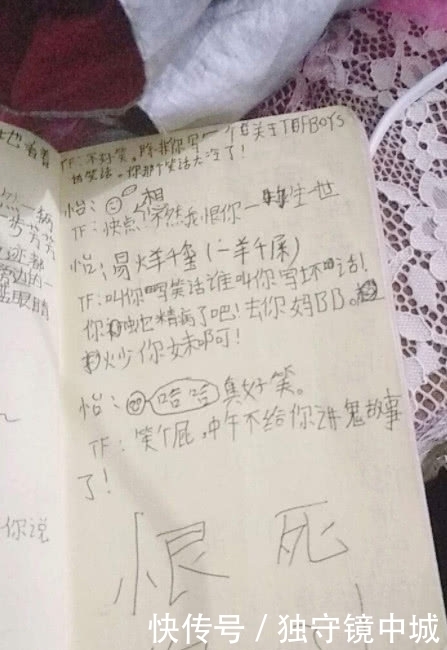 也看着
TF:不好笑。除非你写一个关于TFBOYS
的笑话,你那个笑话太冷了!
怡:相
TF:快点!不然我恨你一生一世
怡:易烊千玺(二羊千尿)
TF:叫你写笑话谁叫你写坏话!
你精病了吧!去你妈BB。
炒你妹啊可!
怡:哈哈真好笑。
TF:笑个屁,中午不给你讲鬼故事
了!
恨死
你说
快传号/独守镜中城